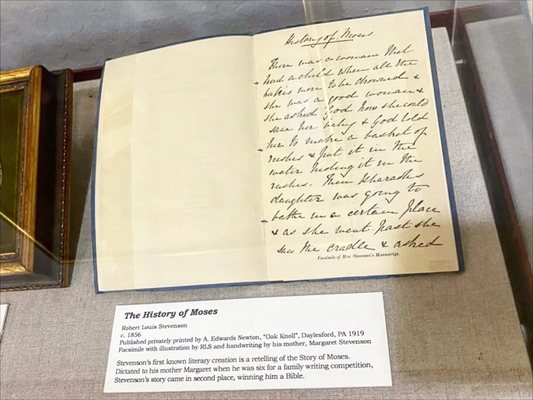 History of Moses
There was a woman that
had a child when all the
babies were to be drowned &
she was a good woman &
she asked God how she could
save her baby & God told
her to make a basket of
rushes & put it in the
water hiding it in the
rushes. Then Pharaohs
daughter was going to
bathe in a certain place
& as she went past she
saw the cradle & asked
Facsimile of Mrs. Stevenson's Manuscript.
The History of Moses
Robert Louis Stevenson
c. 1856
Published privately printed by A. Edwards Newton, "Oak Knoll", Daylesford, PA 1919
Facsimile with illustration by RLS and handwriting by his mother, Margaret Stevenson
Stevenson's first known literary creation is a retelling of the Story of Moses.
Dictated to his mother Margaret when he was six for a family writing competition,
Stevenson's story came in second place, winning him a Bible.